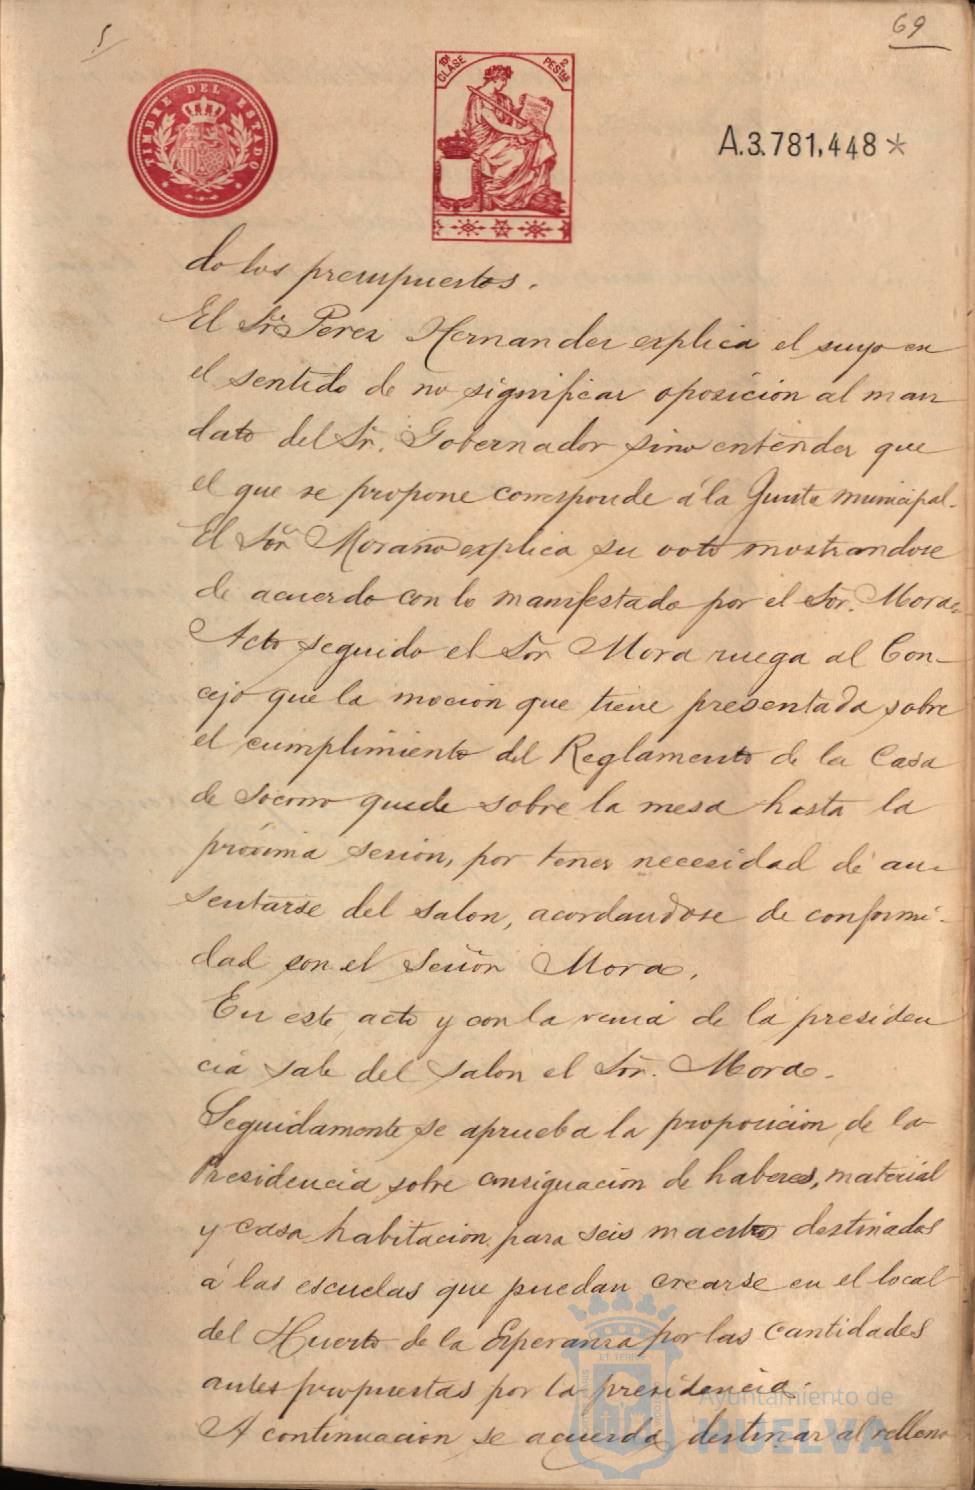 5
69
TIMBRE DEL ESTADO
10ª CLASE
2 PESTAS
A.3.781,448*
do los presupuestos.
El Sr. Perez Hernandez explica el suyo en
el sentido de no significar oposición al man
dato del Sr. Gobernador sino entender que
el que se propone corresponde á la Junta municipal.
El Sor. Moraño explica su voto mostrandose
de acuerdo con lo manifestado por el Sor. Mora.
Acto seguido el Sor. Mora ruega al Con-
cejo que la moción que tiene presentada sobre
el cumplimiento del Reglamento de la Casa
de Socorro quede sobre la mesa hasta la
próxima sesion, por tener necesidad de au-
sentarse del salon, acordandose de conformi-
dad con el Señor Mora.
En este acto y con la venia de la presiden
cia sale del salon el Sor. Mora.
Seguidamente se aprueba la proposición de la
Presidencia sobre consignación de haberes, material
y casa habitacion para seis maestros destinados
á las escuelas que puedan crearse en el local
del Huerto de la Esperanza por las cantidades
antes propuestas por la presidencia.
A continuacion se acuerda destinar al relleno
Ayuntamiento de
HUELVA